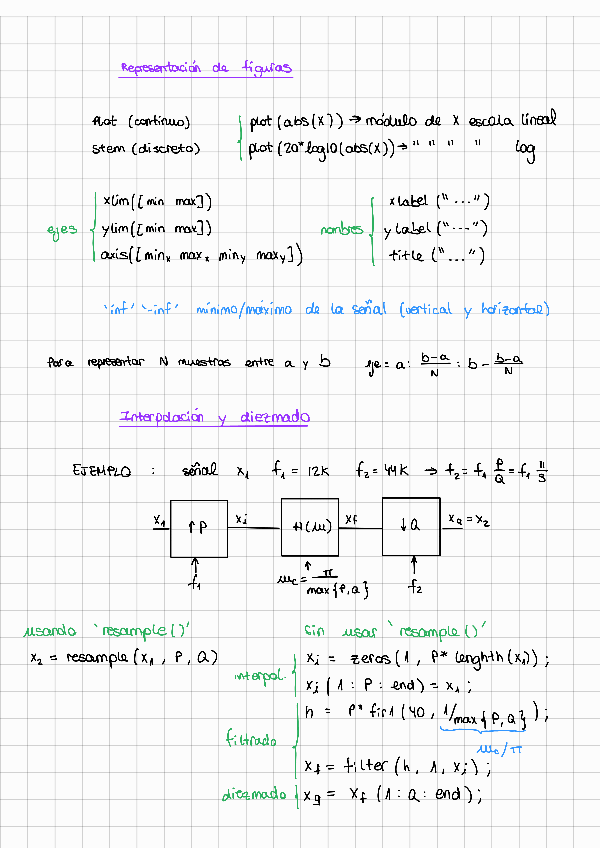 Representación de figuras
plot (continuo)
stem (discreto)
plot (abs(X)) → módulo de X escala lineal
plot (20*log10(abs(X)) → " " " " log
ejes
xlim([min max])
ylim([min max])
axis([minx maxx miny maxy])
nombres
xlabel ("...")
ylabel ("...")
title ("...")
'inf' '-inf' mínimo/máximo de la señal (vertical y horizontal)
Para representar N muestras entre a y b eje = a: (b-a)/N : b - (b-a)/N
Interpolación y diezmado
EJEMPLO : señal x1 f1 = 12k f2 = 44k → f2 = f1 P/Q = f1 11/3
x1 ↑P xi H(ω) xf ↓Q xQ = x2
f1 ωc = π/max{P,Q} f2
usando 'resample()'
x2 = resample(x1, P, Q)
Sin usar 'resample()'
interpol.
xi = zeros(1, P* lenghth(x1));
xi (1 : P : end) = x1;
filtrado
h = P* fir1 (40, 1/max{P,Q});
ωc/π
xf = filter(h, 1, xi);
diezmado
xq = xf (1 : Q : end);